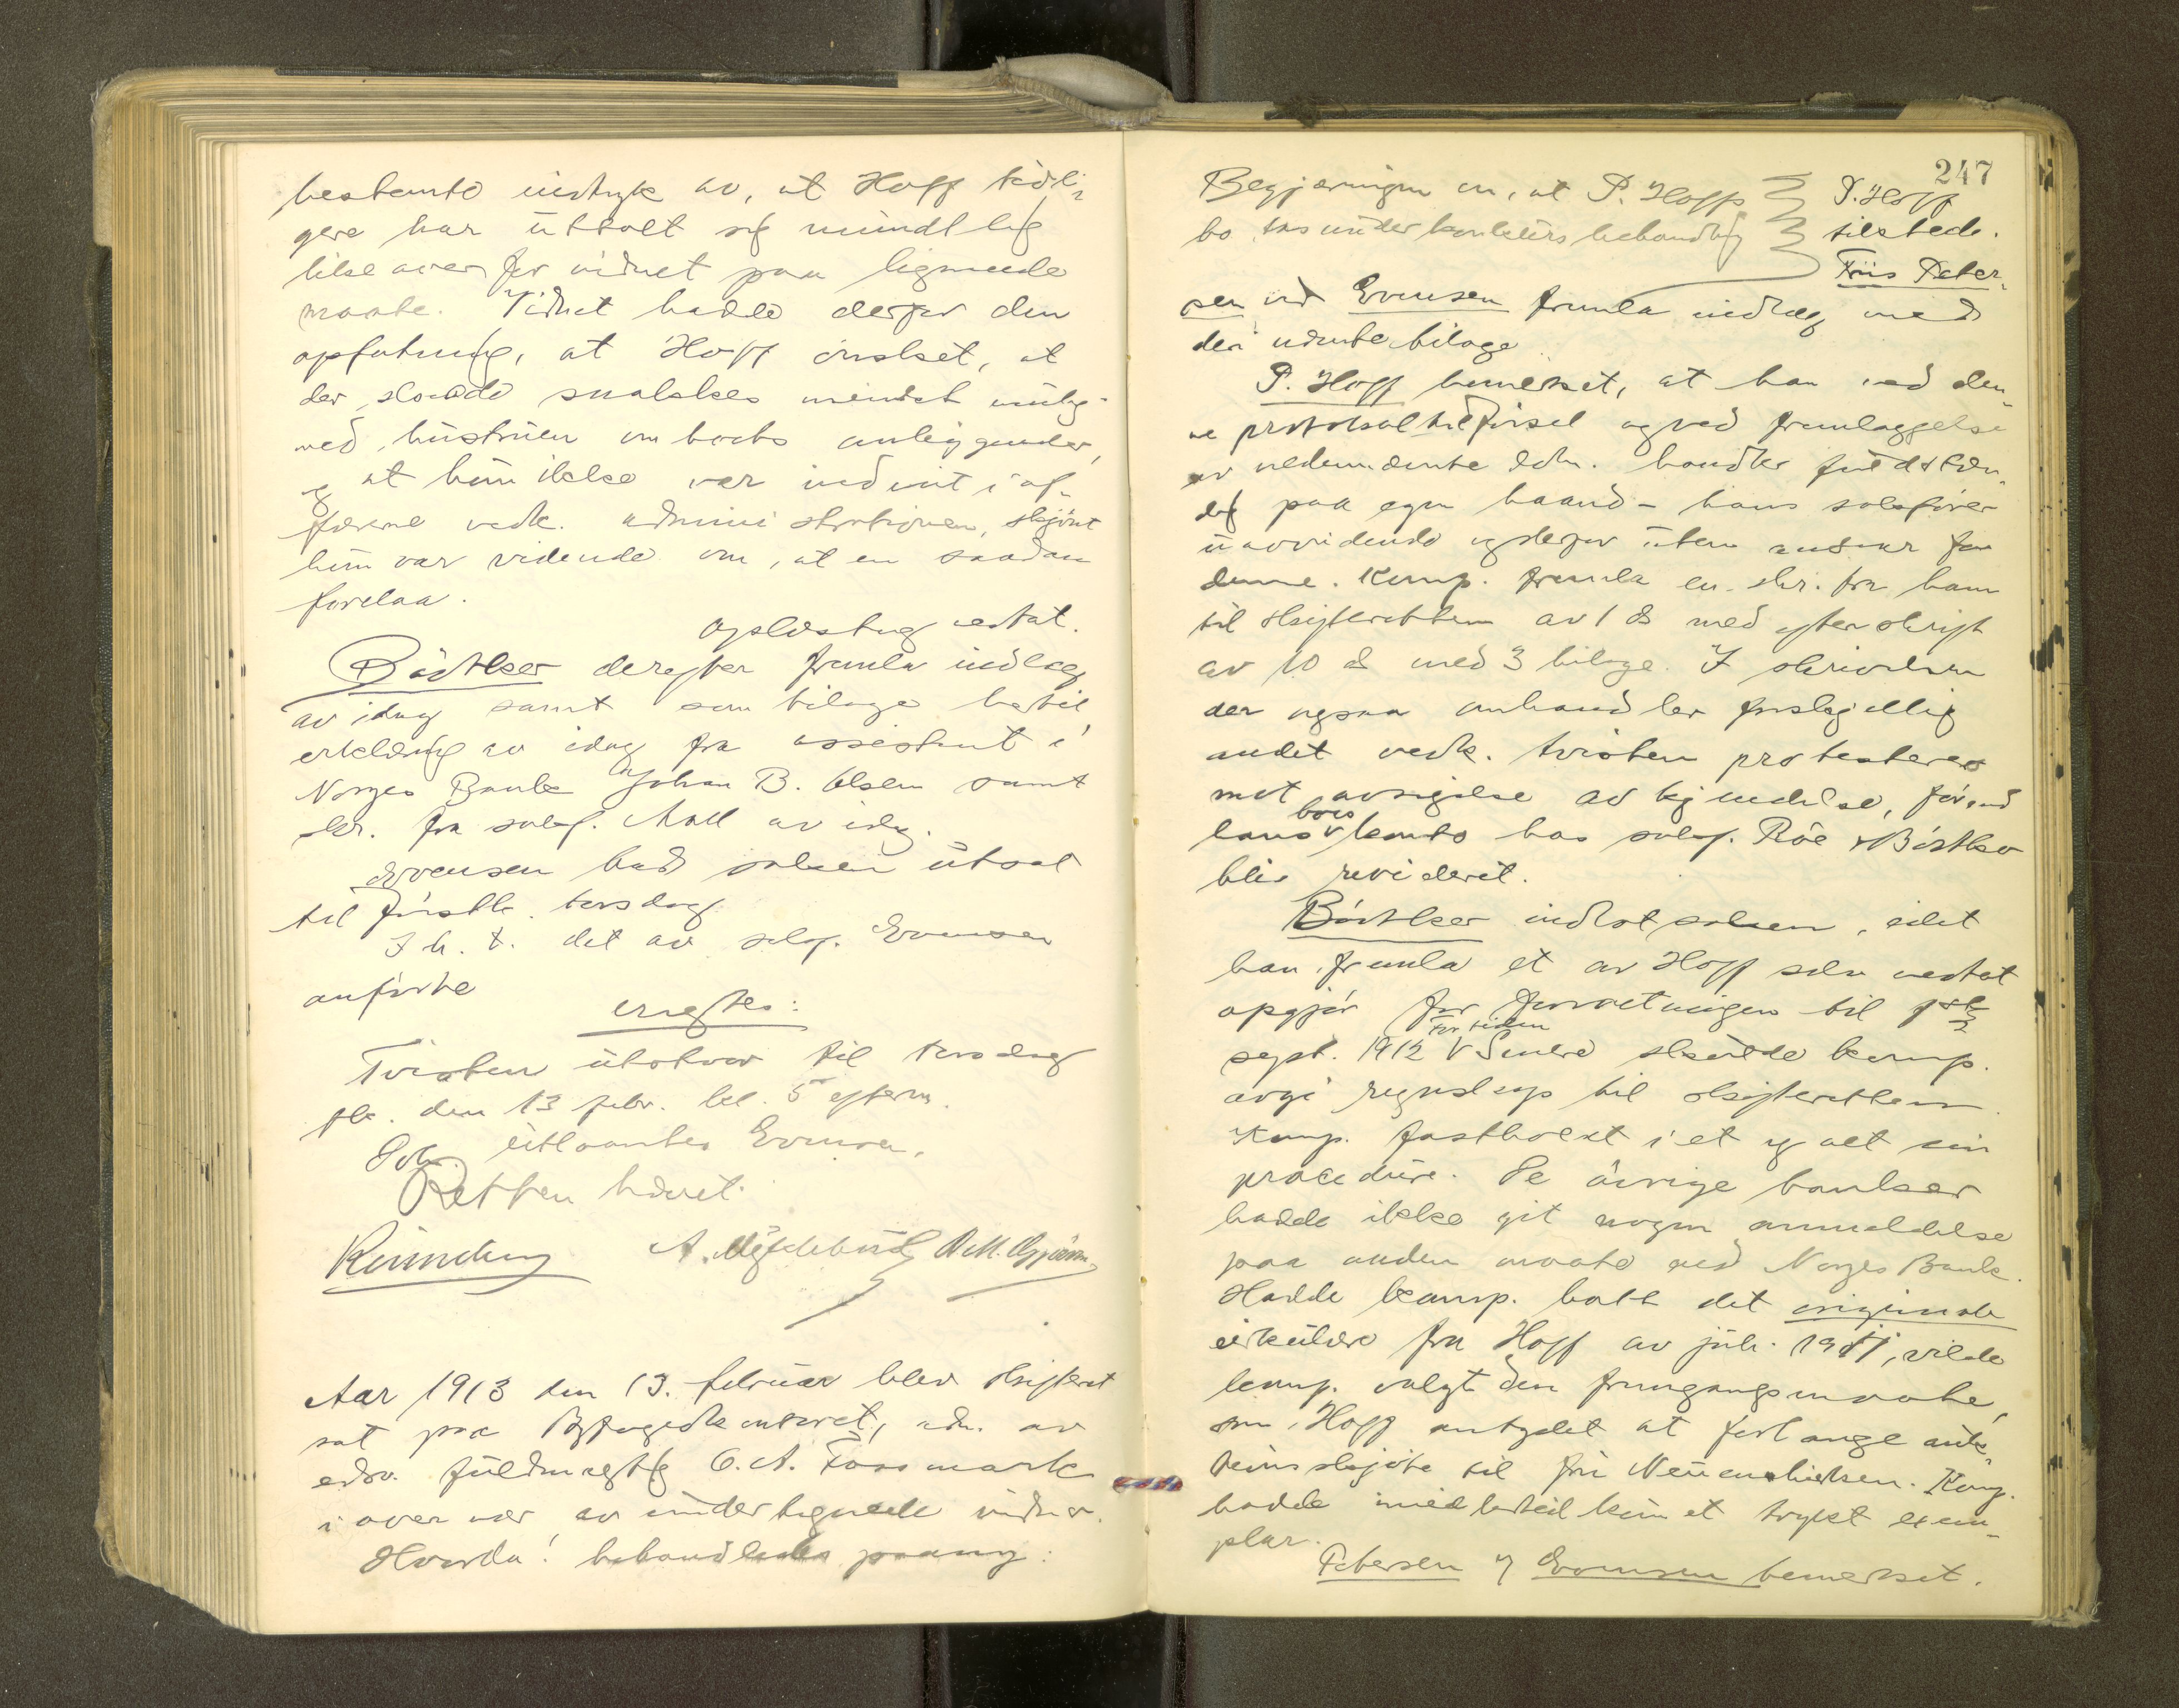 bestemte indtryk av, at Hoff tidli-
gere har uttalt sig mundtlig
like overfor vidnet paa lignende
maate. Vidnet hadde derfor den
opfatning, at Hoff ønsket, at
der skulde snakkes mindst mulig
med hustruen om boets anliggender,
og at hun ikke var indviet i af-
færerne vedk. administrationen, skjønt
hun var vidende om, at en saadan
forelaa.
Oplæsning vedtat.
Bödtker derefter fremla indlæg
av idag samt som bilage hertil
erklæring av idag fra assistent i
Norges Bank Johan B. Olsen samt
skr. fra sakf. Moll av idag.
Evensen bad saken utsat
til förstk. torsdag.
I h. t. det av sakf. Evensen
anförte
eragtes:
Tvisten utstaar til torsdag
förstk. den 13 febr. kl. 5 efterm.
Dok. utlaantes Evensen.
Retten hævet.
Aar 1913 den 13. februar blev skifteret
sat paa Byfogedkontoret, adm. av
edsv. fuldmægtig O. A. Fossmark
i overvær av undertegnede vidner.
Hvorda: behandledes paany:
247
Begjæringen om, at P. Hoffs
bo tas under konkursbehandling
P. Hoff
tilstede.
Friis Peter-
sen ved Evensen fremla indlæg med
deri nævnte bilage
P. Hoff bemerket, at han ved den-
ne protokoltilförsel og ved fremlæggelse
av nedennævnte dok. handler fuldstæn-
dig paa egen haand - hans sakförer
uavvidende og derfor uten ansvar for
denne. Komp. fremla en skr. fra ham
til skifteretten av 1 ds med efterskrift
av 10 ds med 3 bilage. I skrivelsen
der ogsaa omhandler forskjellig
andet vedk. tvisten protesteres
mot avsigelse av kjendelse, förend
hans boes konto hos sakf. Roe & Bödtker
blir revideret.
Bödtker indlot saken, idet
han fremla et av Hoff selv vedtat
opgjör for forretningen til 1ste
sept. 1912 For tiden Senere skulde komp.
avgi regnskap til skifteretten.
Komp. fastholdt i et og alt sin
procedure. De övrige banker
hadde ikke git nogen anmeldelse
paa anden maate end Norges Bank.
Hadde komp. hatt det originale
cirkulære fra Hoff av juli 1911, vilde
komp. valgt den fremgangsmaate,
som Hoff antydet at forlange auk-
tionsskjöte til fru Neuenkirchen. Komp.
hadde imidlertid kun et trykt exem-
plar.
Petersen og Evensen bemerket.